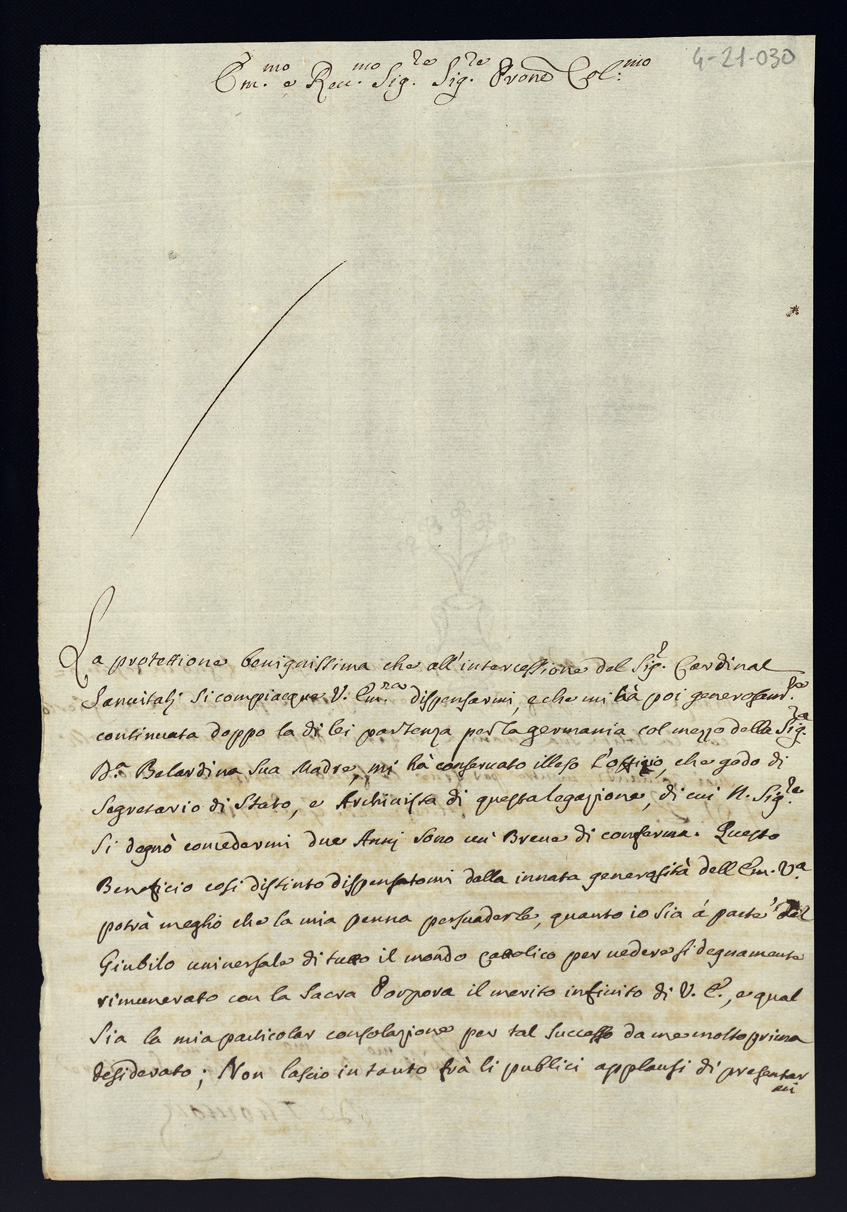 4-21-030
Em.mo e Reu.mo Sig.re Sig.re Prone Col:mo
La protettione benignissima che all'intercessione del Sig.r Cardinal
Sanuitalj si compiacque V. Em.za dispensarmi, e che mi hà poi generosam.te
continuata doppo la di lei partenza per la germania col mezzo della Sig.ra
D.a Belardina sua Madre, mi hà conseruato illeso l'offitio, che godo di
Segretario di Stato, e Archiuista di questa legazione, di cui N. Sig.re
si degnò concedermi due Annj sono un Breue di conferma. Questo
Beneficio così distinto dispensatomi dalla innata generosità dell Em. Va
potrà meglio che la mia penna persuaderle, quanto io sia á parte del
Giubilo uniuersale di tutto il mondo cattolico per uedere sì degnamente
rimunerato con la Sacra Porpora il merito infinito di V. E., e qual
sia la mia particolar consolazione per tal successo da me molto prima
desiderato; Non lascio intanto frà li publici applausi di presentar
mi